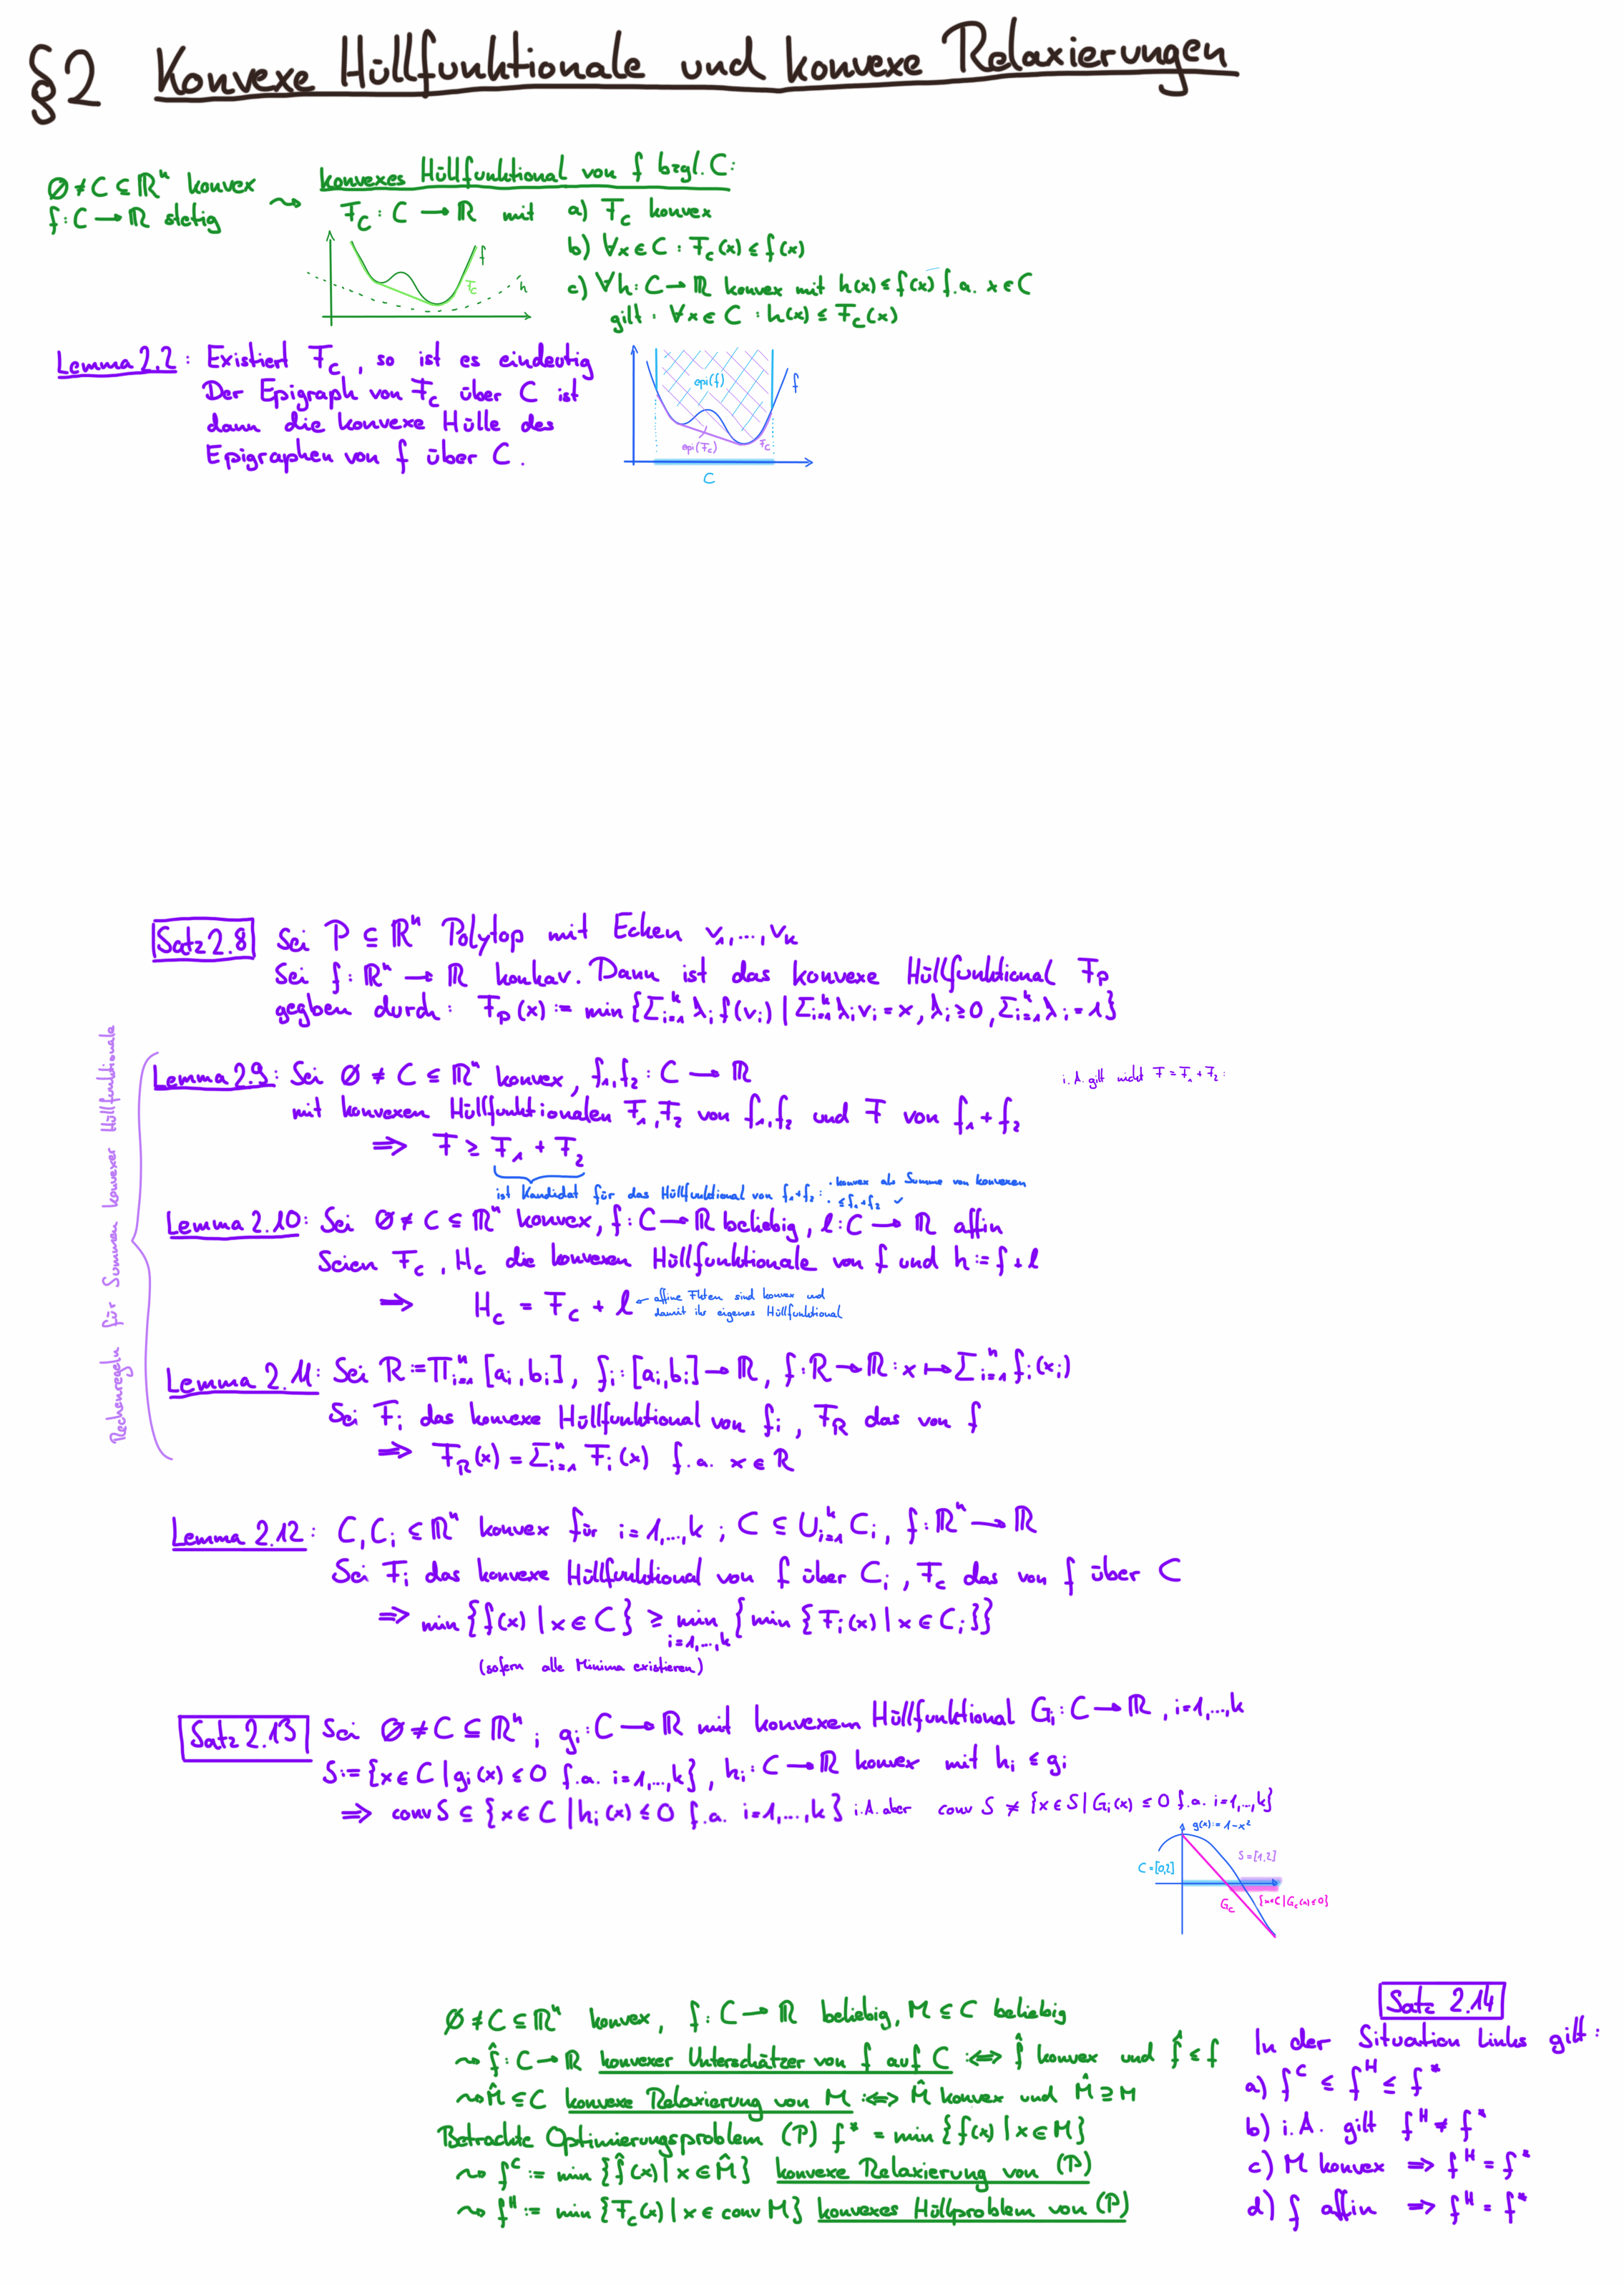 §2 Konvexe Hüllfunktionale und konvexe Relaxierungen
∅ ≠ C ⊆ ℝⁿ konvex
f: C → ℝ stetig
⇝
konvexes Hüllfunktional von f bzgl. C:
F_C : C → ℝ mit a) F_C konvex
b) ∀x ∈ C : F_C(x) ≤ f(x)
c) ∀h: C → ℝ konvex mit h(x) ≤ f(x) f.a. x ∈ C
gilt: ∀x ∈ C : h(x) ≤ F_C(x)
f
F_C
h
Lemma 2.2: Existiert F_C, so ist es eindeutig
Der Epigraph von F_C über C ist
dann die konvexe Hülle des
Epigraphen von f über C.
epi(f)
f
epi(F_C)
F_C
C
Satz 2.8 Sei P ⊆ ℝⁿ Polytop mit Ecken v₁,...,v_k
Sei f: ℝⁿ → ℝ konkav. Dann ist das konvexe Hüllfunktional F_P
gegben durch: F_P(x) := min {Σᵢ₌₁ᵏ λᵢ f(vᵢ) | Σᵢ₌₁ᵏ λᵢvᵢ = x, λᵢ ≥ 0, Σᵢ₌₁ᵏ λᵢ = 1}
Rechenregeln für Summen konvexer Hüllfunktionale
Lemma 2.9: Sei ∅ ≠ C ⊆ ℝⁿ konvex, f₁,f₂ : C → ℝ
i.A. gilt nicht F = F₁ + F₂ :
mit konvexen Hüllfunktionalen F₁,F₂ von f₁,f₂ und F von f₁ + f₂
⇒ F ≥ F₁ + F₂
ist Kandidat für das Hüllfunktional von f₁+f₂: · konvex als Summe von konvexen
· ≤ f₁+f₂ ✓
Lemma 2.10: Sei ∅ ≠ C ⊆ ℝⁿ konvex, f: C → ℝ beliebig, l: C → ℝ affin
Seien F_C, H_C die konvexen Hüllfunktionale von f und h := f + l
⇒ H_C = F_C + l ← affine Fkten sind konvex und
damit ihr eigenes Hüllfunktional
Lemma 2.11: Sei R := Πᵢ₌₁ⁿ [aᵢ,bᵢ], fᵢ: [aᵢ,bᵢ] → ℝ, f: R → ℝ : x ↦ Σᵢ₌₁ⁿ fᵢ(xᵢ)
Sei Fᵢ das konvexe Hüllfunktional von fᵢ, F_R das von f
⇒ F_R(x) = Σᵢ₌₁ⁿ Fᵢ(x) f.a. x ∈ R
Lemma 2.12: C, Cᵢ ⊆ ℝⁿ konvex für i = 1,...,k ; C ⊆ ∪ᵢ₌₁ᵏ Cᵢ, f: ℝⁿ → ℝ
Sei Fᵢ das konvexe Hüllfunktional von f über Cᵢ, F_C das von f über C
⇒ min {f(x) | x ∈ C} ≥ min {min {Fᵢ(x) | x ∈ Cᵢ}}
i=1,...,k
(sofern alle Minima existieren)
Satz 2.13 Sei ∅ ≠ C ⊆ ℝⁿ ; gᵢ: C → ℝ mit konvexem Hüllfunktional Gᵢ: C → ℝ, i=1,...,k
S := {x ∈ C | gᵢ(x) ≤ 0 f.a. i=1,...,k}, hᵢ: C → ℝ konvex mit hᵢ ≤ gᵢ
⇒ conv S ⊆ {x ∈ C | hᵢ(x) ≤ 0 f.a. i=1,...,k} i.A. aber conv S ≠ {x ∈ S | Gᵢ(x) ≤ 0 f.a. i=1,...,k}
g(x) := 1-x²
C = [0,2]
S = [1,2]
G_C
{x∈C | G_C(x) ≤ 0}
∅ ≠ C ⊆ ℝⁿ konvex, f: C → ℝ beliebig, M ⊆ C beliebig
⇝ f̂: C → ℝ konvexer Unterschätzer von f auf C :⇔ f̂ konvex und f̂ ≤ f
⇝ M̂ ⊆ C konvexe Relaxierung von M :⇔ M̂ konvex und M̂ ⊇ M
Betrachte Optimierungsproblem (P) f* = min {f(x) | x ∈ M}
⇝ f^C := min {f̂(x) | x ∈ M̂} konvexe Relaxierung von (P)
⇝ f^H := min {F_C(x) | x ∈ conv M} konvexes Hüllproblem von (P)
Satz 2.14
In der Situation Links gilt:
a) f^C ≤ f^H ≤ f*
b) i.A. gilt f^H ≠ f*
c) M konvex ⇒ f^H = f*
d) f affin ⇒ f^H = f*